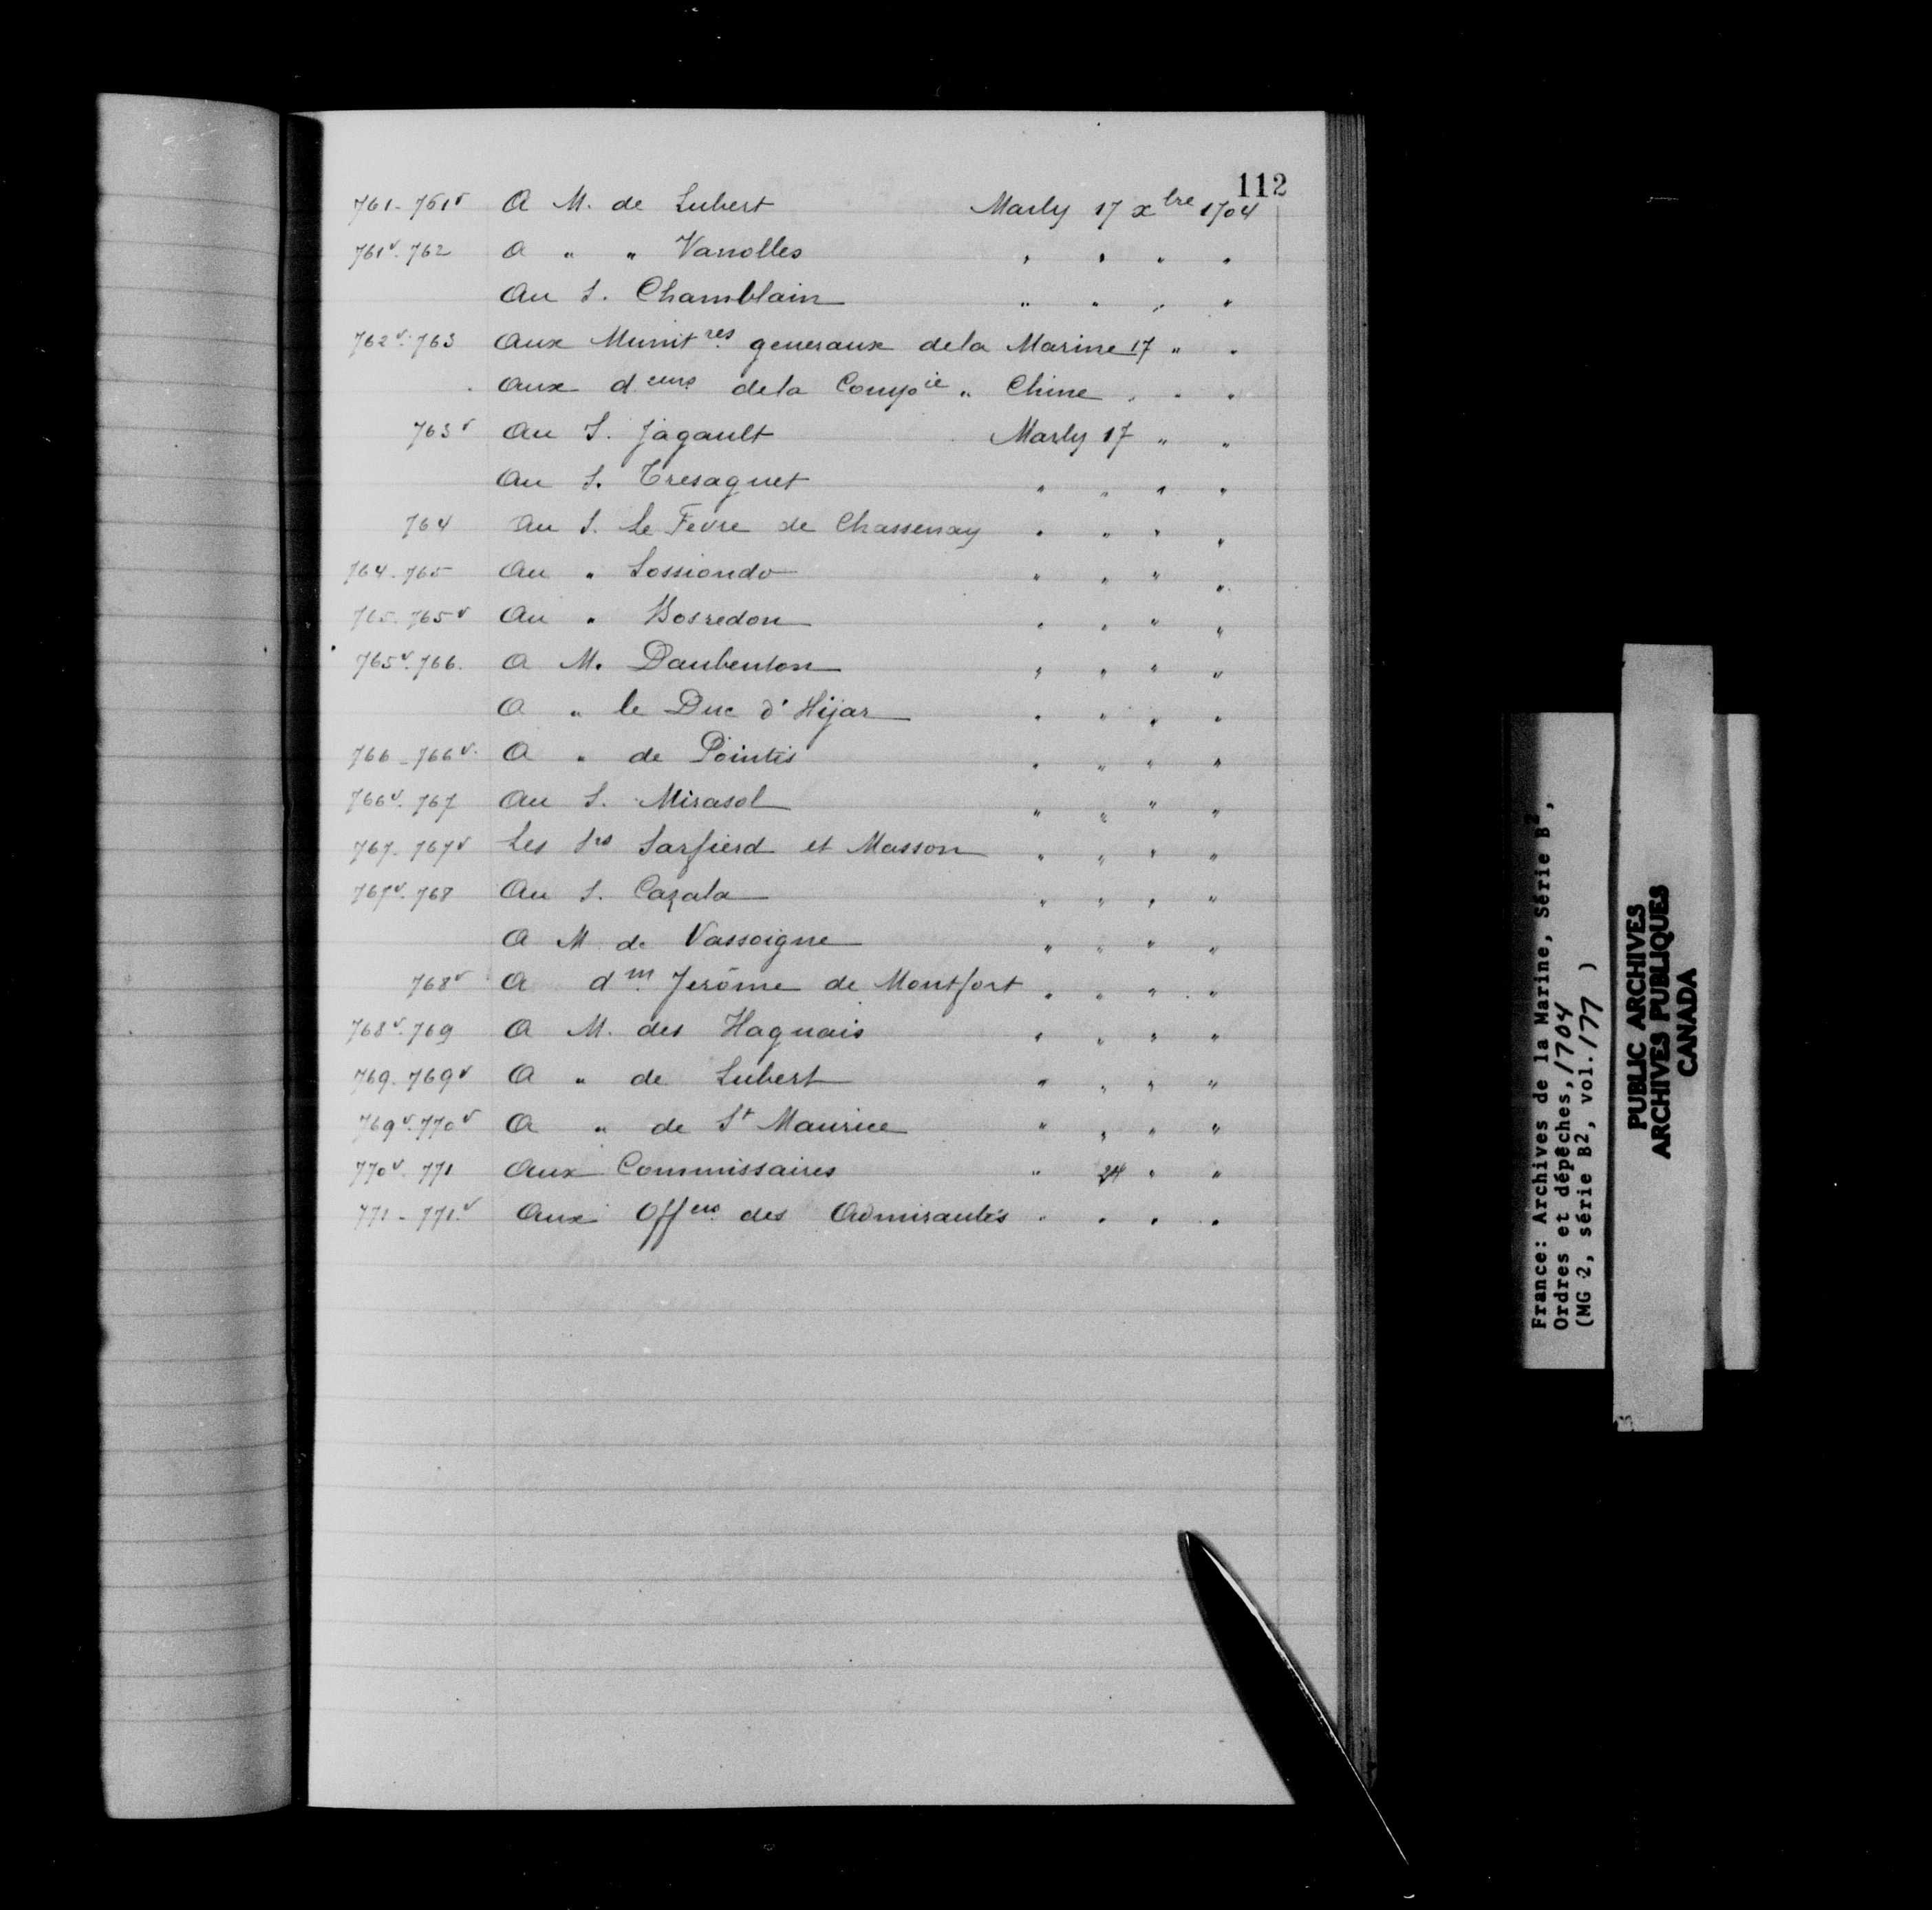 112
761-761v A M. de Lubert Marly 17 xbre 1704
761v-762 A " " Vanolles " " " "
Au S. Chamblain " " " "
762v-763 Aux Munitres generaux dela Marine 17 " "
Aux deurs dela Compie " Chine " " "
763v Au S. Jagault Marly 17 " "
Au S. Tresaguet " " " "
764 Au S. Le Fevre de Chassenay " " " "
764-765 Au " Lossiondo " " " "
765-765v Au " Bosredon " " " "
765v-766. A M. Daubenton " " " "
A " le Duc d'Hijar " " " "
766-766v. A " de Pointis " " " "
766v-767 Au S. Mirasol " " " "
767-767v Les Srs Sarfierd et Masson " " " "
767v-768 Au S. Cazala " " " "
A M. de Vassoigne " " " "
768v A dm Jerôme de Montfort " " " "
768v-769 A M. des Haguais " " " "
769-769v A " de Lubert " " " "
769v-770v A " de St Maurice " " " "
770v-771 Aux Commissaires " 24 " "
771-771v Aux Offers des Admirautés " " " "
France: Archives de la Marine, Série B2,
Ordres et dépêches, 1704
(MG 2, série B2, vol. 177 )
PUBLIC ARCHIVES
ARCHIVES PUBLIQUES
CANADA